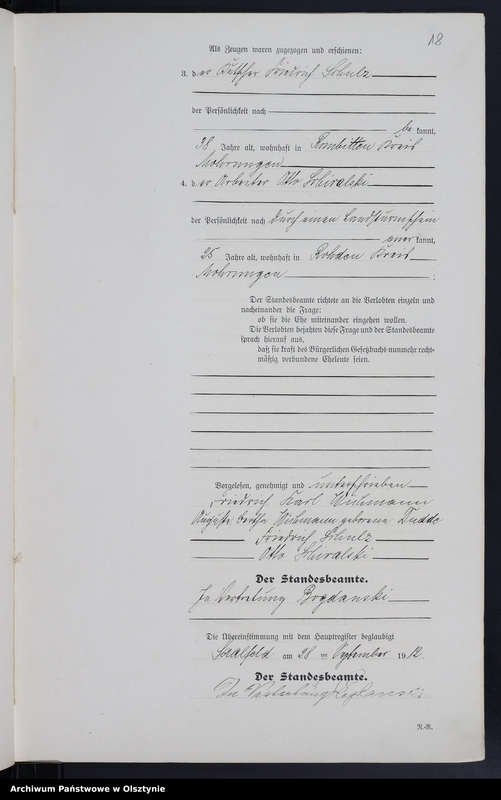 18
Als Zeugen waren zugezogen und erschienen:
3. der Kutscher Friedrich Schulz
der Persönlichkeit nach
be kannt,
38 Jahre alt, wohnhaft in Rombitten Kreis
Mohrungen
4. der Arbeiter Otto
der Persönlichkeit nach durch einen Landsturmschein
aner kannt,
25 Jahre alt, wohnhaft in Rohden Kreis
Mohrungen ;
Der Standesbeamte richtete an die Verlobten einzeln und
nacheinander die Frage:
ob sie die Ehe miteinander eingehen wollen.
Die Verlobten bejahten diese Frage und der Standesbeamte
sprach hierauf aus,
daß sie kraft des Bürgerlichen Gesetzbuchs nunmehr recht-
mäßig verbundene Eheleute seien.
Vorgelesen, genehmigt und unterschrieben
Friedrich Karl
Auguste Bertha geborene Dudde
Friedrich Schulz
Otto
Der Standesbeamte.
In Vertretung Bogdanski
Die Übereinstimmung mit dem Hauptregister beglaubigt
Saalfeld am 28 ten September 1912.
Der Standesbeamte.
In Vertretung Bogdanski
N.-R.
Archiwum Państwowe w Olsztynie